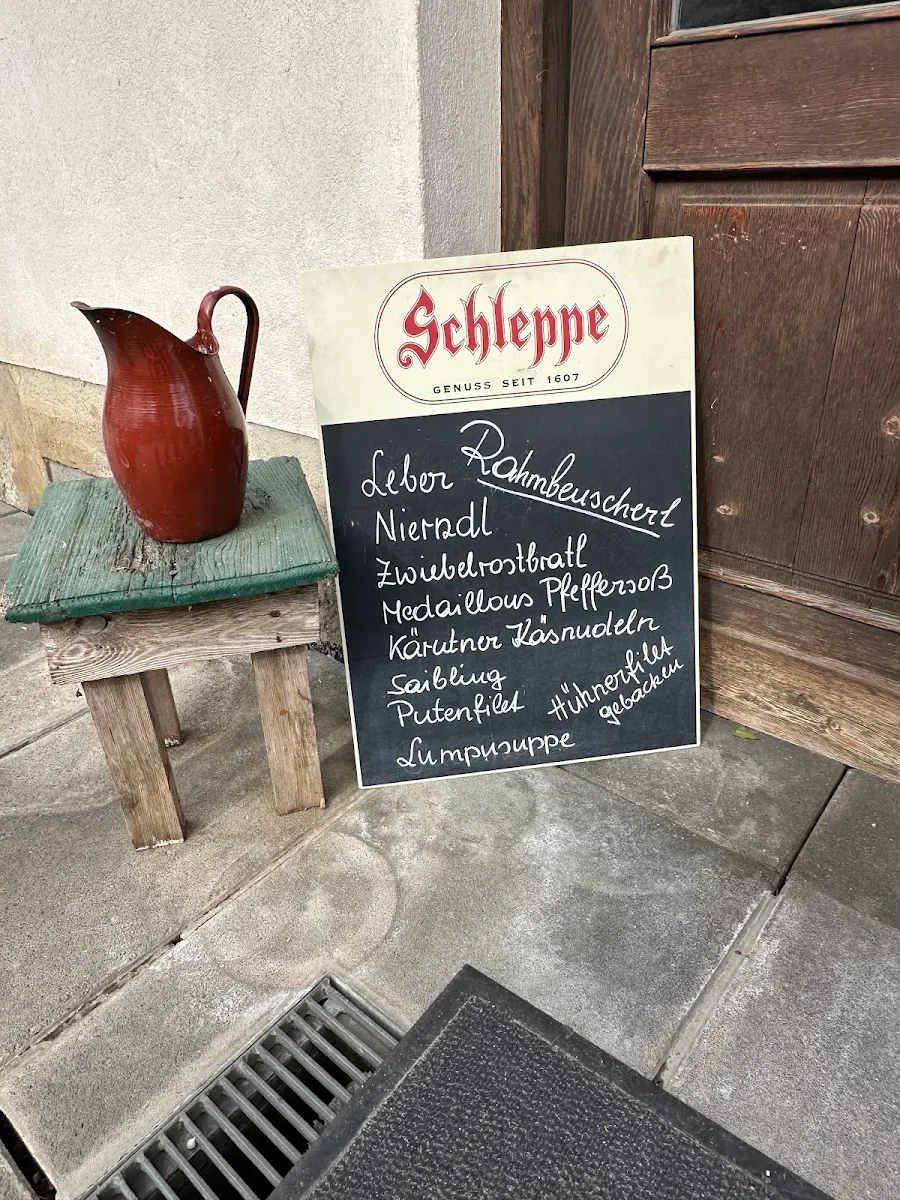 Schleppe
GENUSS SEIT 1607
Leber
Rahmbeuscherl
Nierndl
Zwiebelrostbratl
Medaillous Pfeffersoß
Kärntner Käsnudeln
Saibling
Putenfilet
Hühnerfilet
gebacken
Lumpnsuppe